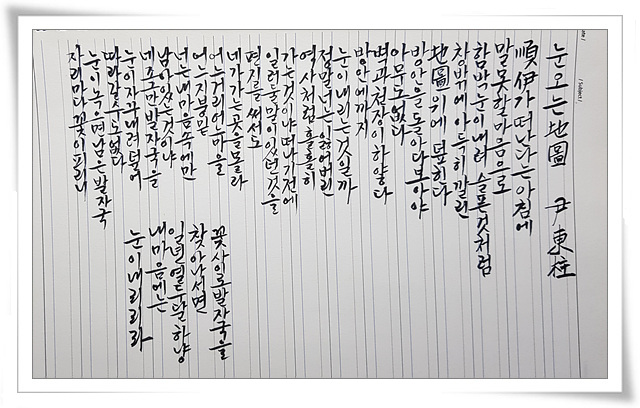 눈오는地圖 尹東柱
順伊가떠난다는아침에
말못할마음으로
함박눈이내려 슬픈것처럼
창밖에아득히깔린
地圖위에덮힌다
방안을돌아다보아야
아무도없다
벽과천장이하얗다
방안에까지
눈이내리는것일까
정말너는잃어버린
역사처럼훌훌히
가는것이냐떠나기전에
일러둘말이있던것을
편지를써서도
네가가는곳을몰라
어느거리어느마을
어느지붕밑
너는내마음속에만
남아있는것이냐
네조그만발자국을
눈이자꾸내려덮어
따라갈수도없다
눈이녹으면남은발자국
자리마다꽃이피리니
꽃사이로발자국을
찾아나서면
일년열두달하냥
내마음에는
눈이내리리라